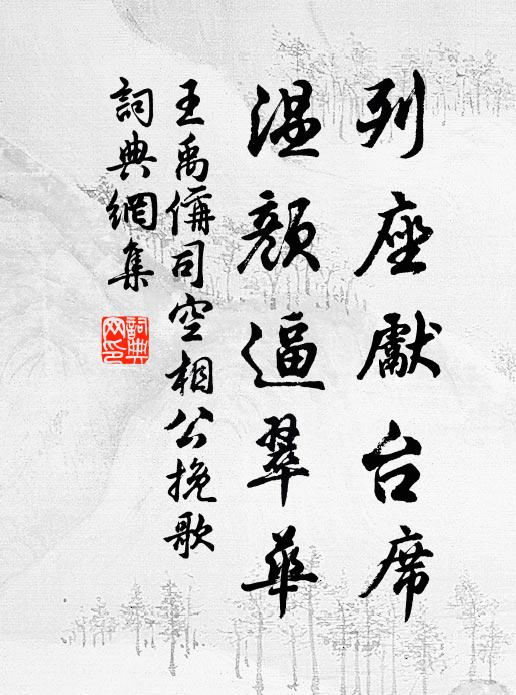 列座獻台席
温顏逼翠華
王禹偁司空相公挽歌
詞典網集
詞典网印